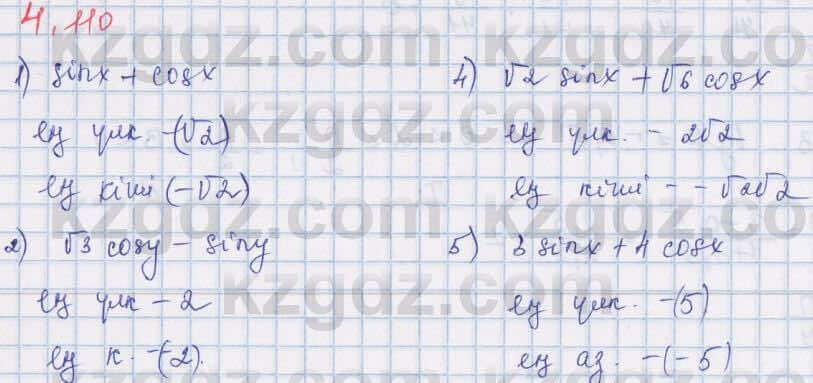 4.110
1) sinx + cosx
ең үлк. -(√2)
ең кіші (-√2)
2) √3 cosy - siny
ең үлк - 2
ең к. -(-2).
4) √2 sinx + √6 cosx
ең үлк. - 2√2
ең кіші - - √2√2
5) 3 sinx + 4 cosx
ең үлк. -(5)
ең аз. -(-5)
kzgdz.com